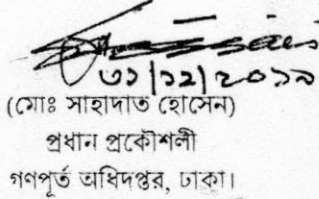 ৩১/১২/২০১৯
(মোঃ সাহাদাত হোসেন)
প্রধান প্রকৌশলী
গণপূর্ত অধিদপ্তর, ঢাকা।